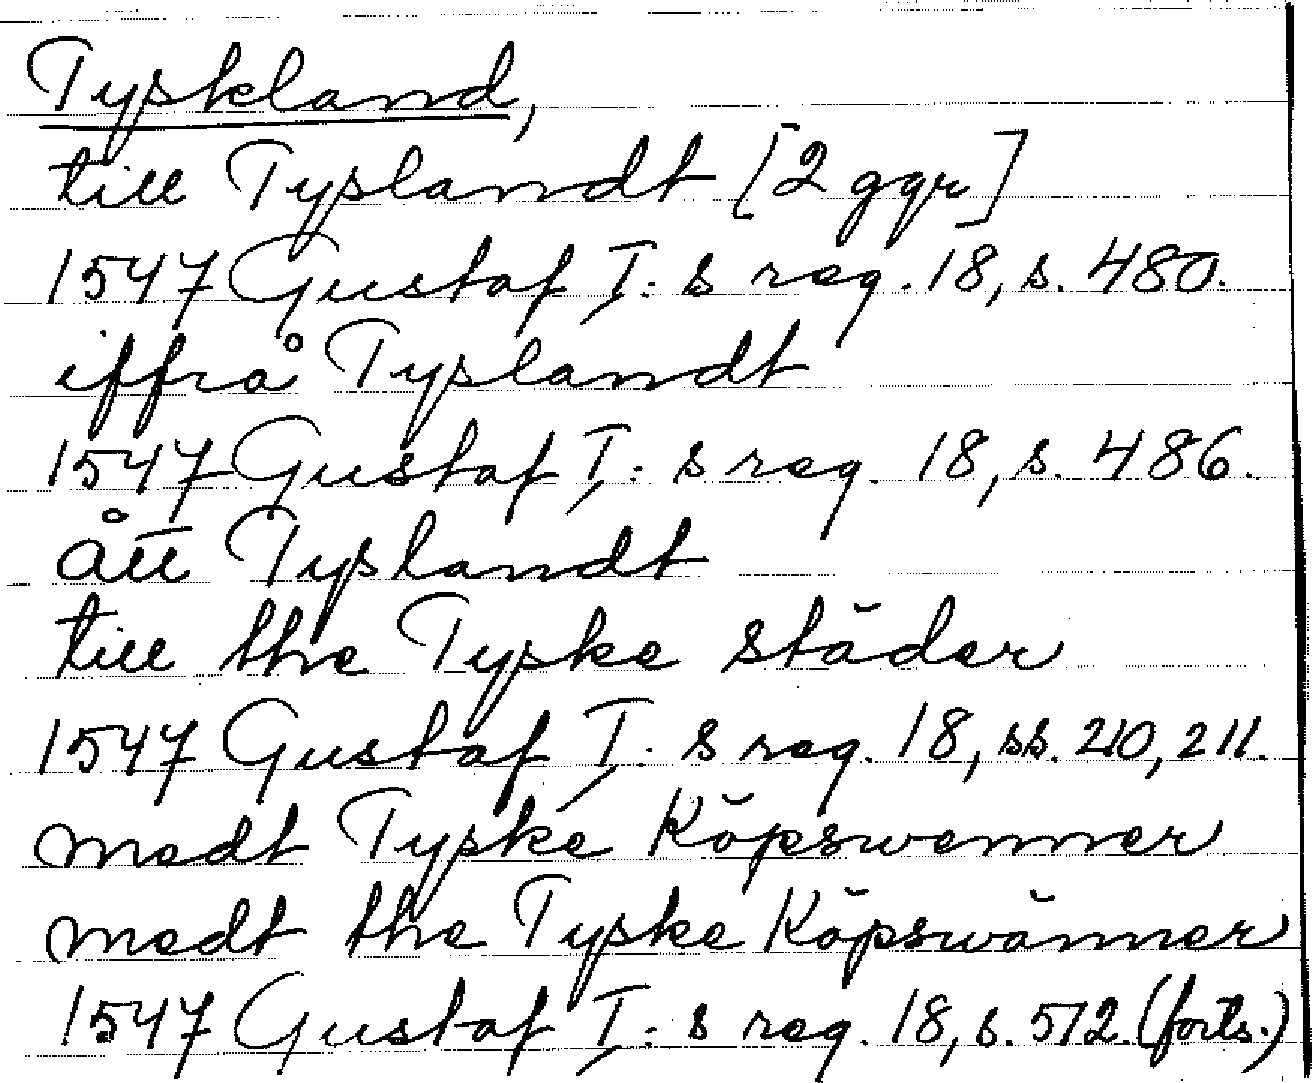 Tyskland,
till Tyslandt [2 ggr]
1547 Gustaf I: s reg. 18, s. 480.
iffrå Tyslandt
1547 Gustaf I: s reg. 18, s. 486.
ått Tyslandt
till the Tyske städer
1547 Gustaf I: s reg. 18, ss. 210, 211.
medt Tyske Köpswenner
medt the Tyske Köpswänner
1547 Gustaf I: s reg. 18, s. 512. (forts.)